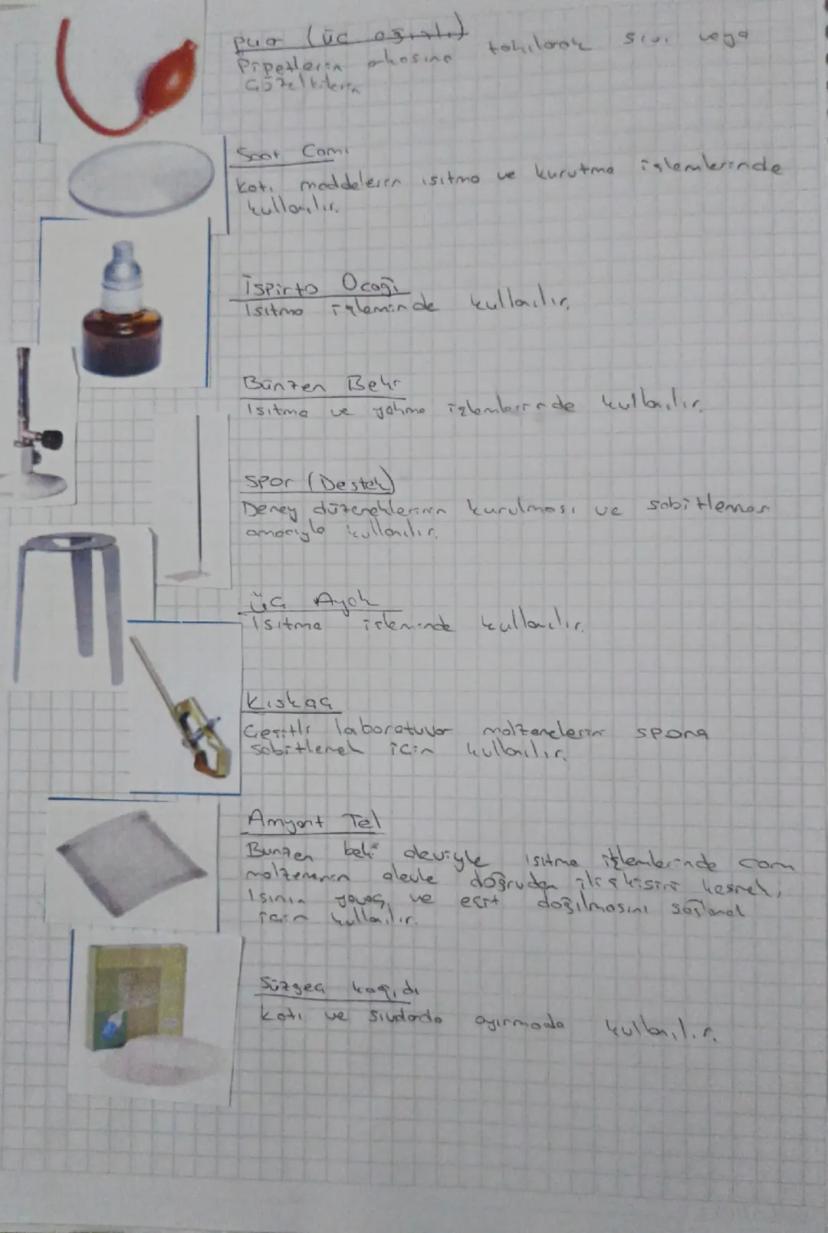 puar (üç ağızlı)
Pipetlerin arkasına takılarak sıvı veya
çözeltilerin
Saat Camı
Katı maddelerin ısıtma ve kurutma işlemlerinde
kullanılır.
İspirto Ocağı
Isıtma işleminde kullanılır.
Bünzen Beki
Isıtma ve yakma işlemlerinde kullanılır.
Spor (Destek)
Deney düzeneklerinin kurulması ve sabitlenmesi
amacıyla kullanılır.
üç Ayak
Isıtma işleminde kullanılır.
Kıskaç
Çeşitli laboratuvar malzemelerin spora
sabitlemek için kullanılır.
Amyant Tel
Bunzen beki aleviyle ısıtma işlemlerinde cam
malzemenin alevle doğrudan ilişkisini kesmek,
Isının yavaş ve eşit dağılmasını sağlamak
için kullanılır.
Süzgeç kağıdı
Katı ve sıvılarda ayırmada kullanılır.